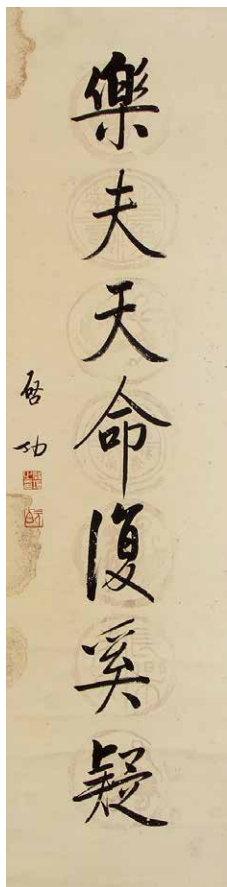 樂夫天命復奚疑
啓功